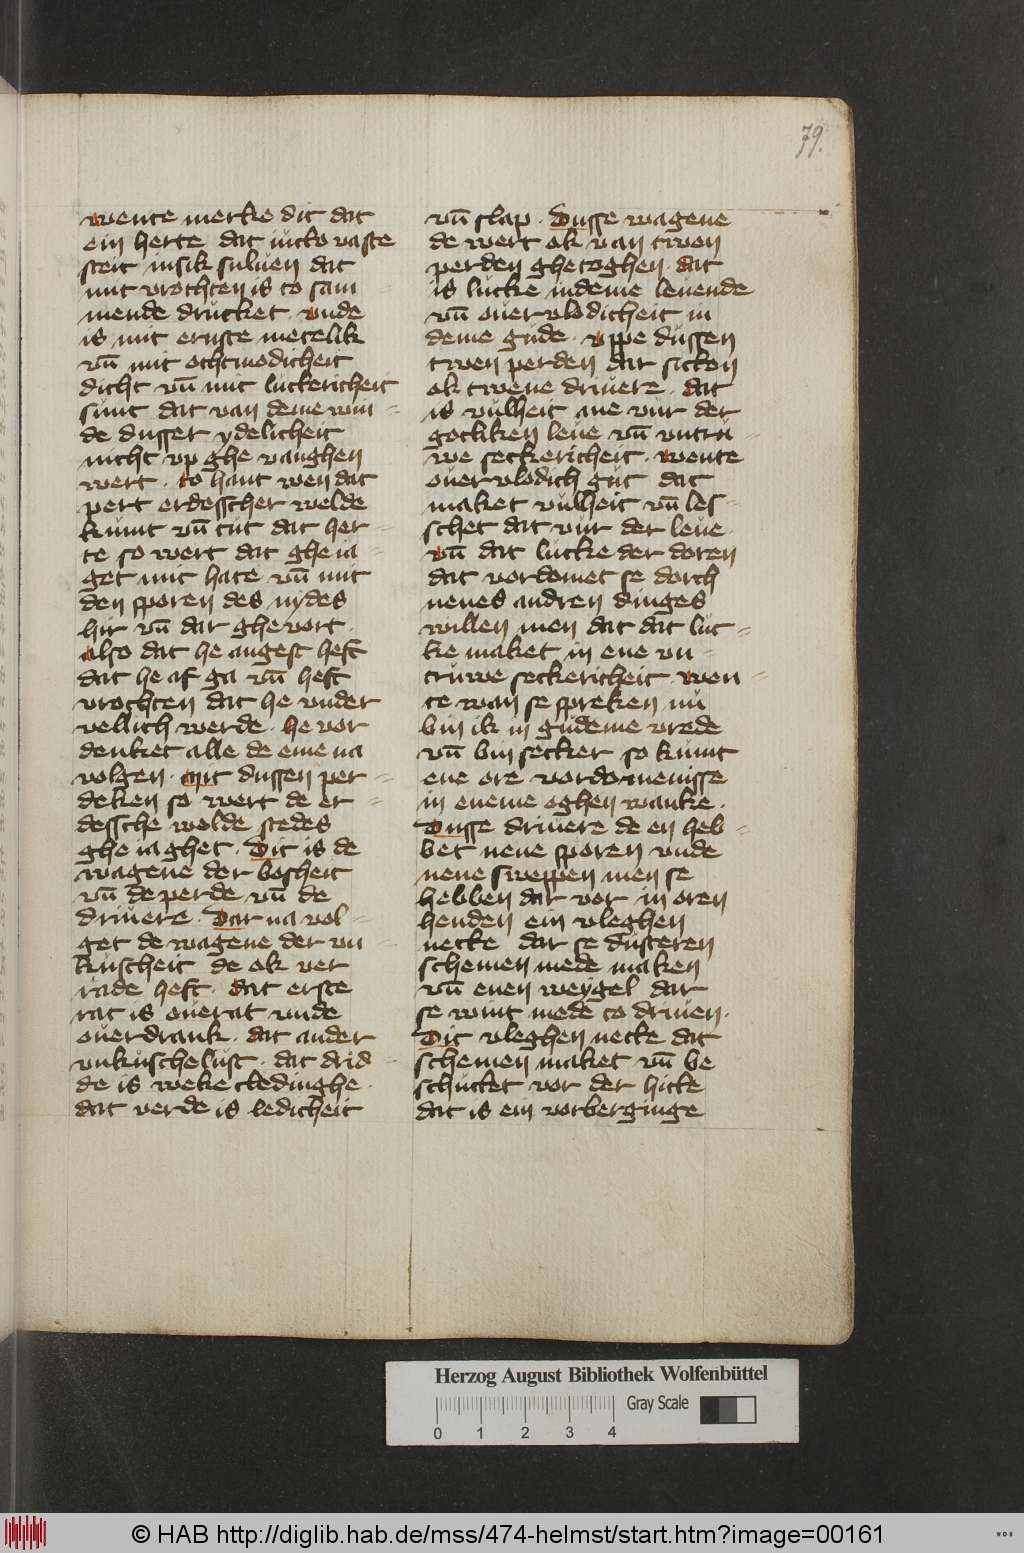 79.
wente merke dit dat
ein herte dat iucto vaste
steit insik suluen dat
mit vrochten is to sam
mende drucket vnde
is mit ernste metelik
vn̄ mit othmodicheit
dicht vn̄ mit luckericheit
sunt dat van deme win-
de dusser ydelicheit
nicht vp ghe vanghen
wert · to hant wen dat
pert erdesscher welde
kumt vn̄ tut dat her-
te so wert dat ghe ia-
get mit hate vn̄ mit
den sporen des nydes
hir vn̄ dar ghevort ·
also dat he angest heft
dat he af ga vn̄ heft
vrochten dat he vnder
vellich werde · he vor
denket alle de eme na
volgen · mit dussen per-
deken so wert de er-
dessche welde stedes
ghe iaghet · Dit is de
wagene der bosheit
vn̄ de perde vn̄ de
driuere · Dar na vol-
get de wagene der vn-
kuscheit de ok ver
rade heft · dat erste
rat is ouerat vnde
ouerdrank · dat ander
vnkusche lust · dat drid-
de is weke cledinghe ·
dat verde is ledicheit
vn̄ slap · Dusse wagene
de wert ok van twen
perden ghetoghen · dat
is lucke indeme leuende
vn̄ ouervlodicheit in
deme gude · vppe dussen
twen perden dar sitten
ok twene driuere · dat
is vulheit ane vur der
gotliken leue vn̄ vntru-
we seckericheit · wente
ouervlodich gut dat
maket vulheit vn̄ les-
schet dat vur der leue ·
vn̄ dat lucke der doren
dat vordomet se dorch
nenes andren dinges
willen men dat dat luc-
ke maket in ene vn-
truwe seckericheit · wen-
te wan se spreken nu
bin ik in gudeme vrede
vn̄ bin secker so kumt
ene ore vordomenisse
in eneme oghen wanke ·
Dusse driuere de en heb-
bet nene sporen vnde
nene sweppen men se
hebben dar vor in oren
henden ein vleghen
necke dar se dusteren
schemen mede maken
vn̄ enen weygel dar
se wint mede to driuen ·
Dit vleghen necke dat
schemen maket vn̄ be
schucket vor der hitte
dat is ein vorberginge
Herzog August Bibliothek Wolfenbüttel
Gray Scale
0 1 2 3 4
© HAB http://diglib.hab.de/mss/474-helmst/start.htm?image=00161